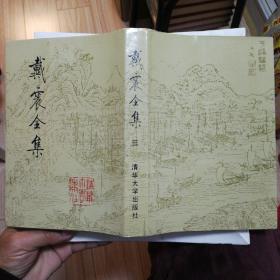 戴震全集
戴震全集
三
清华大学出版社